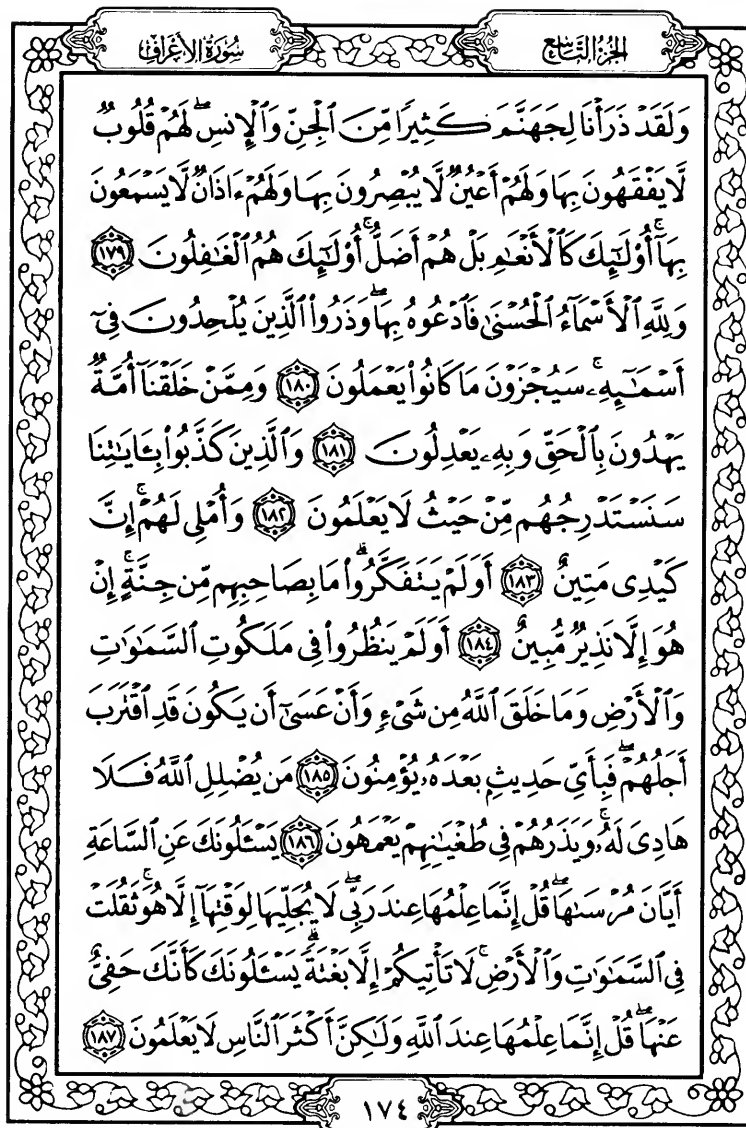 سُورَةُ الأَعْرَافِ
الجُزْءُ التَّاسِعُ
وَلَقَدْ ذَرَأْنَا لِجَهَنَّمَ كَثِيرًا مِّنَ ٱلْجِنِّ وَٱلْإِنسِۖ لَهُمْ قُلُوبٌ
لَّا يَفْقَهُونَ بِهَا وَلَهُمْ أَعْيُنٌ لَّا يُبْصِرُونَ بِهَا وَلَهُمْ ءَاذَانٌ لَّا يَسْمَعُونَ
بِهَآۚ أُو۟لَٰٓئِكَ كَٱلْأَنْعَٰمِ بَلْ هُمْ أَضَلُّۚ أُو۟لَٰٓئِكَ هُمُ ٱلْغَٰفِلُونَ ١٧٩
وَلِلَّهِ ٱلْأَسْمَآءُ ٱلْحُسْنَىٰ فَٱدْعُوهُ بِهَاۖ وَذَرُوا۟ ٱلَّذِينَ يُلْحِدُونَ فِىٓ
أَسْمَٰٓئِهِۦۚ سَيُجْزَوْنَ مَا كَانُوا۟ يَعْمَلُونَ ١٨٠ وَمِمَّنْ خَلَقْنَآ أُمَّةٌ
يَهْدُونَ بِٱلْحَقِّ وَبِهِۦ يَعْدِلُونَ ١٨١ وَٱلَّذِينَ كَذَّبُوا۟ بِـَٔايَٰتِنَا
سَنَسْتَدْرِجُهُم مِّنْ حَيْثُ لَا يَعْلَمُونَ ١٨٢ وَأُمْلِى لَهُمْۚ إِنَّ
كَيْدِى مَتِينٌ ١٨٣ أَوَلَمْ يَتَفَكَّرُوا۟ۗ مَا بِصَاحِبِهِم مِّن جِنَّةٍۚ إِنْ
هُوَ إِلَّا نَذِيرٌ مُّبِينٌ ١٨٤ أَوَلَمْ يَنظُرُوا۟ فِى مَلَكُوتِ ٱلسَّمَٰوَٰتِ
وَٱلْأَرْضِ وَمَا خَلَقَ ٱللَّهُ مِن شَىْءٍ وَأَنْ عَسَىٰٓ أَن يَكُونَ قَدِ ٱقْتَرَبَ
أَجَلُهُمْۖ فَبِأَىِّ حَدِيثٍۭ بَعْدَهُۥ يُؤْمِنُونَ ١٨٥ مَن يُضْلِلِ ٱللَّهُ فَلَا
هَادِىَ لَهُۥۚ وَيَذَرُهُمْ فِى طُغْيَٰنِهِمْ يَعْمَهُونَ ١٨٦ يَسْـَٔلُونَكَ عَنِ ٱلسَّاعَةِ
أَيَّانَ مُرْسَىٰهَاۖ قُلْ إِنَّمَا عِلْمُهَا عِندَ رَبِّىۖ لَا يُجَلِّيهَا لِوَقْتِهَآ إِلَّا هُوَۚ ثَقُلَتْ
فِى ٱلسَّمَٰوَٰتِ وَٱلْأَرْضِۚ لَا تَأْتِيكُمْ إِلَّا بَغْتَةًۗ يَسْـَٔلُونَكَ كَأَنَّكَ حَفِىٌّ
عَنْهَاۖ قُلْ إِنَّمَا عِلْمُهَا عِندَ ٱللَّهِ وَلَٰكِنَّ أَكْثَرَ ٱلنَّاسِ لَا يَعْلَمُونَ ١٨٧
١٧٤